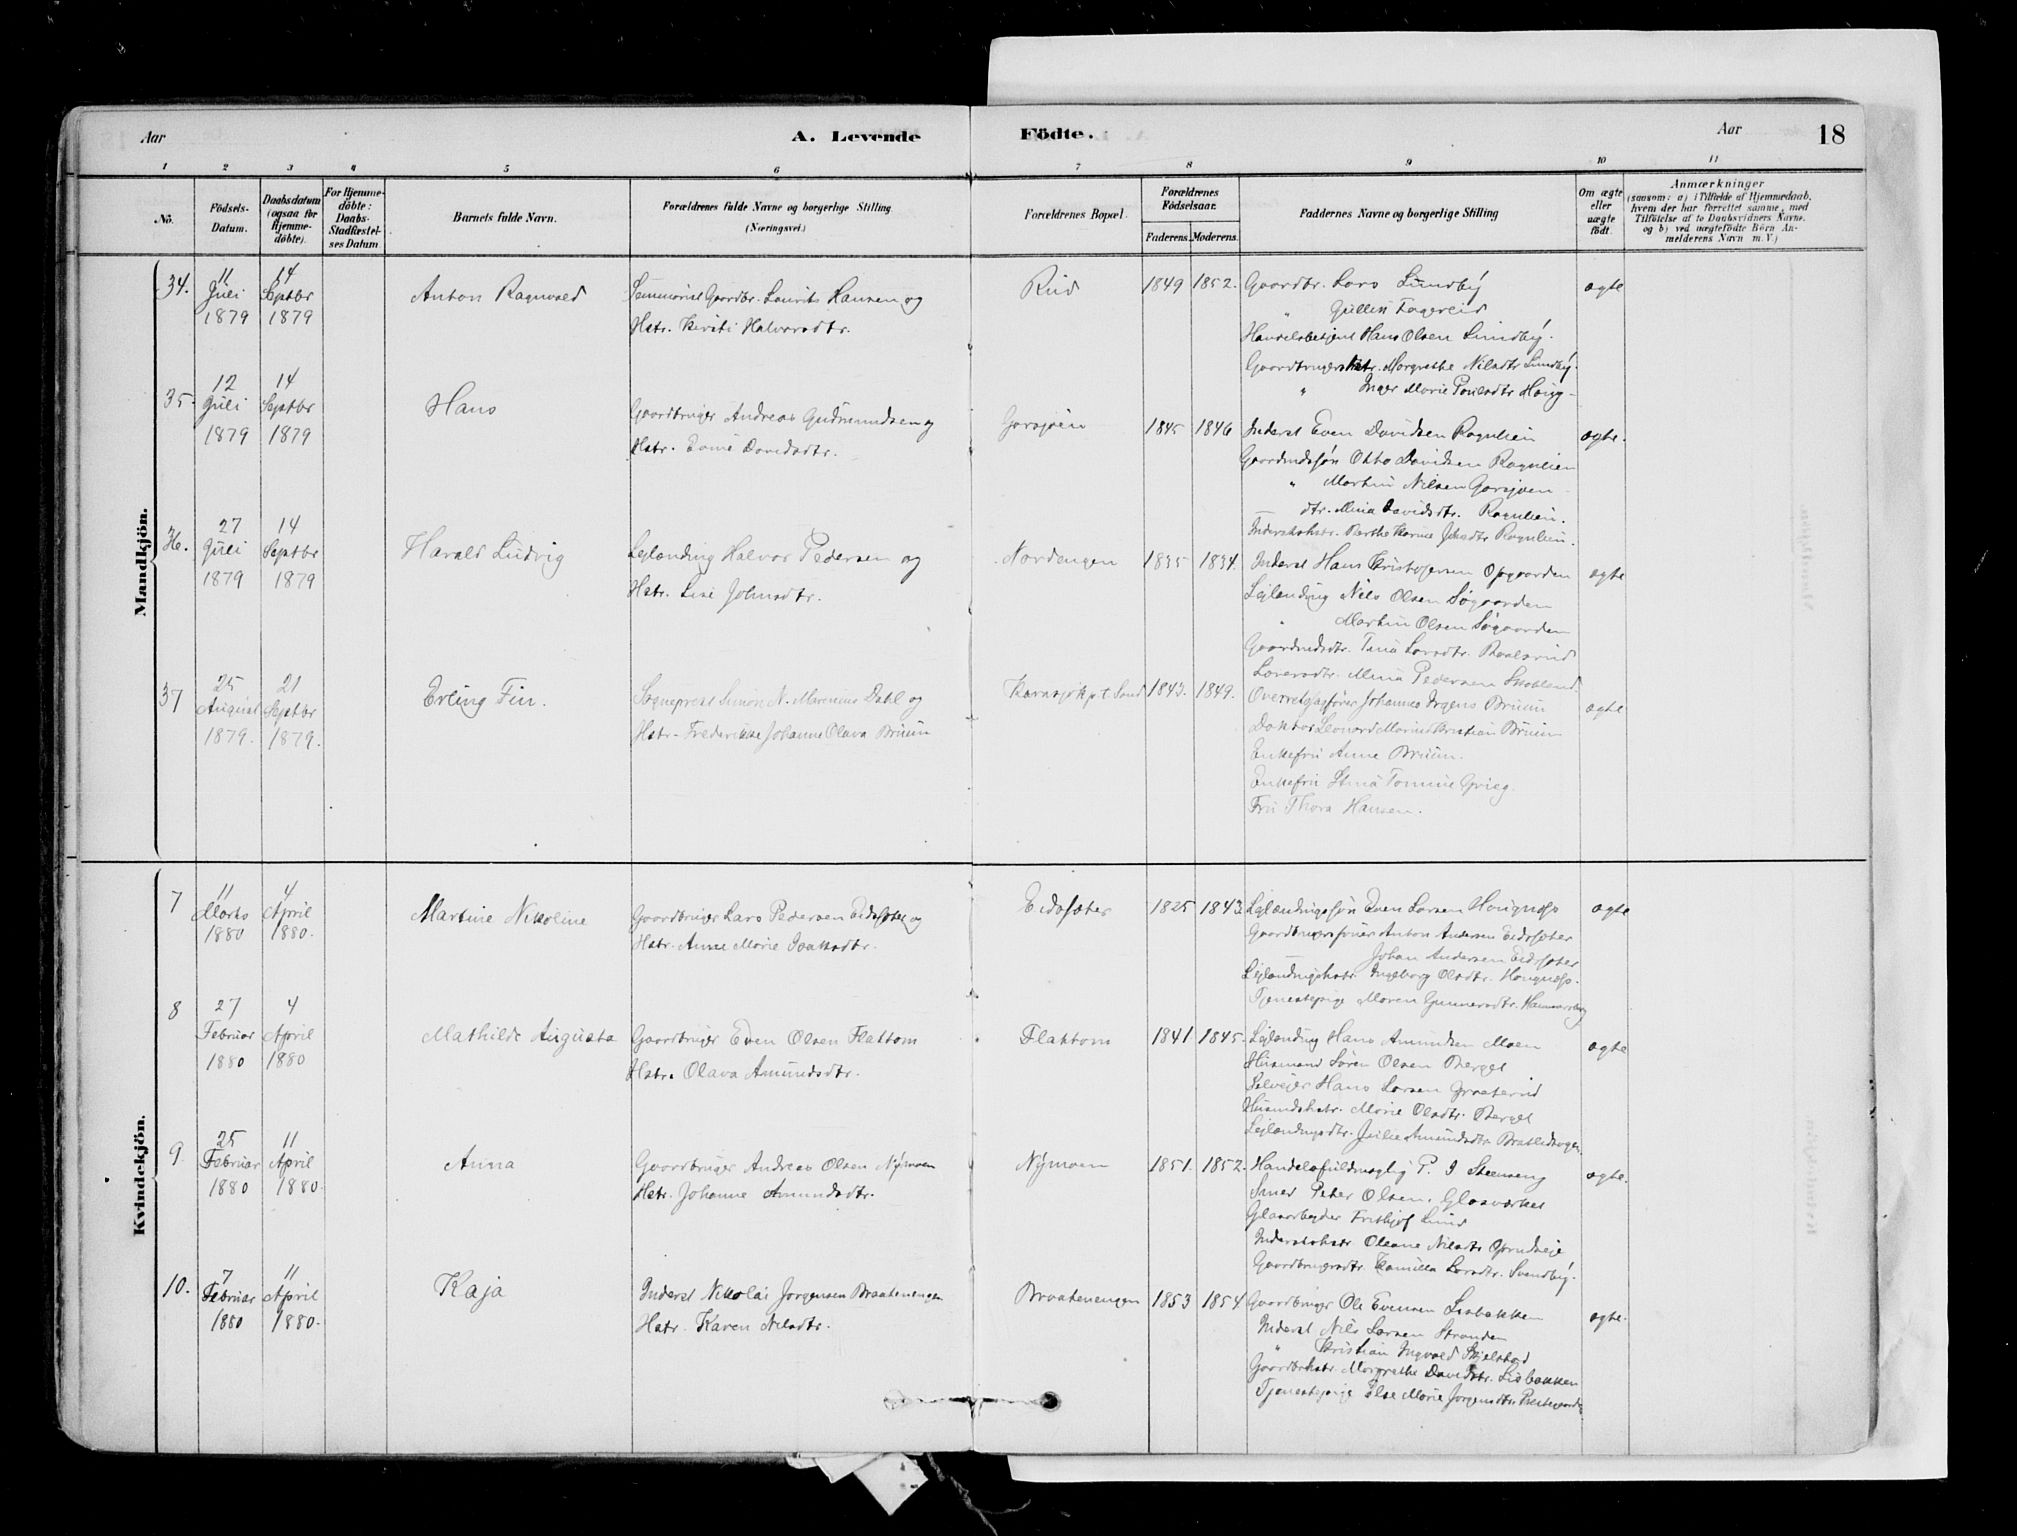 Aar
A. Levende
Födte.
Aar
18
1 2 3 4 5 6 7 8 9 10 11
No.
Födsels-
Datum.
Daabsdatum
(ogsaa for
Hjemme-
döbte).
For Hjemme-
döbte:
Daabs-
Stadfæstel-
ses Datum
Barnets fulde Navn.
Forældrenes fulde Navne og borgerlige Stilling
(Næringsvei.)
Forældrenes Bopæl.
Forældrenes
Födselsaar.
Faderens. Moderens.
Faddernes Navne og borgerlige Stilling
Om ægte
eller
uægte
født.
Anmærkninger
(saasom: a) i Tilfælde af Hjemmedaab,
hvem der har forrettet samme, med
Tilföielse af to Daabsvidners Navne,
og b) ved uægtefödte Börn An-
melderens Navn m. V.)
Mandkjön.
34.
11
Juli
1879
14
Septbr
1879
Anton Ragnvald
Gaardbr. Laurits Hansen og
Hstr. Kirsti Halvorsdtr.
Rud
1849
1852.
Gaardbr. Lars Lundby
" Gullin Fagereid
Handelsbetjent Hans Olsen Lundby.
Gaardbrugerhstr. Margrethe Nilsdtr Lundby.
" Inger Marie Poulsdtr Haug
ægte
35.
12
Juli
1879
14
Septbr
1879
Hans
Gaardbruger Andreas Gudmundsen og
Hstr. Davidsdtr.
Garsjøen
1845
1846
Inderst Even Davidsen Ragnlien
Gaardmdssøn Otto Davidsen Ragnlien
" Martin Nilsen Garsjøen
— dtr. Mina Davidsdtr. Ragnlien.
Inderstshstr. Marthe Karine Ragnlien.
ægte.
36.
27
Juli
1879
14
Septbr
1879
Harald Ludvig
Leilænding Halvor Pedersen og
Hstr. Lise Johnsdtr.
Nordengen
1835
1834.
Inderst Hans Kristofersen Opgaarden
Leilænding Nils Olsen Søgaarden
" Martin Olsen Søgaarden
Gaardmdsdtr. Tina Larsdtr.
Mina Pedersen
ægte
37
25
August
1879.
21
Septbr
1879.
Erling Fin.
Sognepræst Simon N. Marenius Dahl og
Hstr. Frederikke Johanne Olava Bruun
Sand
1843.
1849.
Overretssagfører Johannes Irgens Bruun
Doktor Leonard Kristian Bruun
Enkefru Anne Bruun.
Enkefru Stina Tomine Grieg.
Fru Thora Hansen.
ægte
Kvindekjön.
7
11
Marts
1880
4
April
1880.
Martine Nikoline
Gaardbruger Lars Pedersen Eidsæter og
Hstr. Anne Marie Isaksdtr.
Eidsæter
1825
1843
Leilændingssøn Even Larsen Haugnæss
Gaardbrugersønner Anton Andersen Eidsæter
Johan Andersen Eidsæter
Leilændingshstr. Ingeborg Olsdtr. Haugnæss.
Tjenestepige Maren Gunnersdtr.
ægte
8
27
Februar
1880
4
April
1880
Mathilde Augusta
Gaardbruger Even Olsen Flattom
Hstr. Olava Amundsdtr.
Flattom
1841
1845.
Leilænding Hans Amundsen Moen
Husmand Søren Olsen Berget
Selveier Hans Larsen
Husmdshstr. Marie Olsdtr. Berget
Leilændingsdtr. Julie Amundsdtr.
ægte
9
25
Februar
1880
11
April
1880.
Anna
Gaardbruger Andreas Olsen Nymoen
Hstr. Johanne Amundsdtr.
Nymoen
1851.
1852.
Handelsfuldmægtig P. I
Smed Peter Olsen. Glasværket
Glasarbeider Frithjof Lund
Inderstshstr Oleane Nilsdtr
Gaardbrugersdtr Kamilla Larsdtr. Svendby.
ægte.
10.
7
Februar
1880
11
April
1880.
Kaja
Inderst Nikolai Jørgensen Braatenengen
Hstr. Karen Nilsdtr.
Braatenengen
1853
1854
Gaardbruger Ole Evensen Lisbakken
Inderst Nils Larsen Stranden
" Kristian Ingvald
Gaardbrhstr. Margrethe Davidsdtr. Lisbakken
Tjenestepige Else Marie Jørgensdtr
ægte.